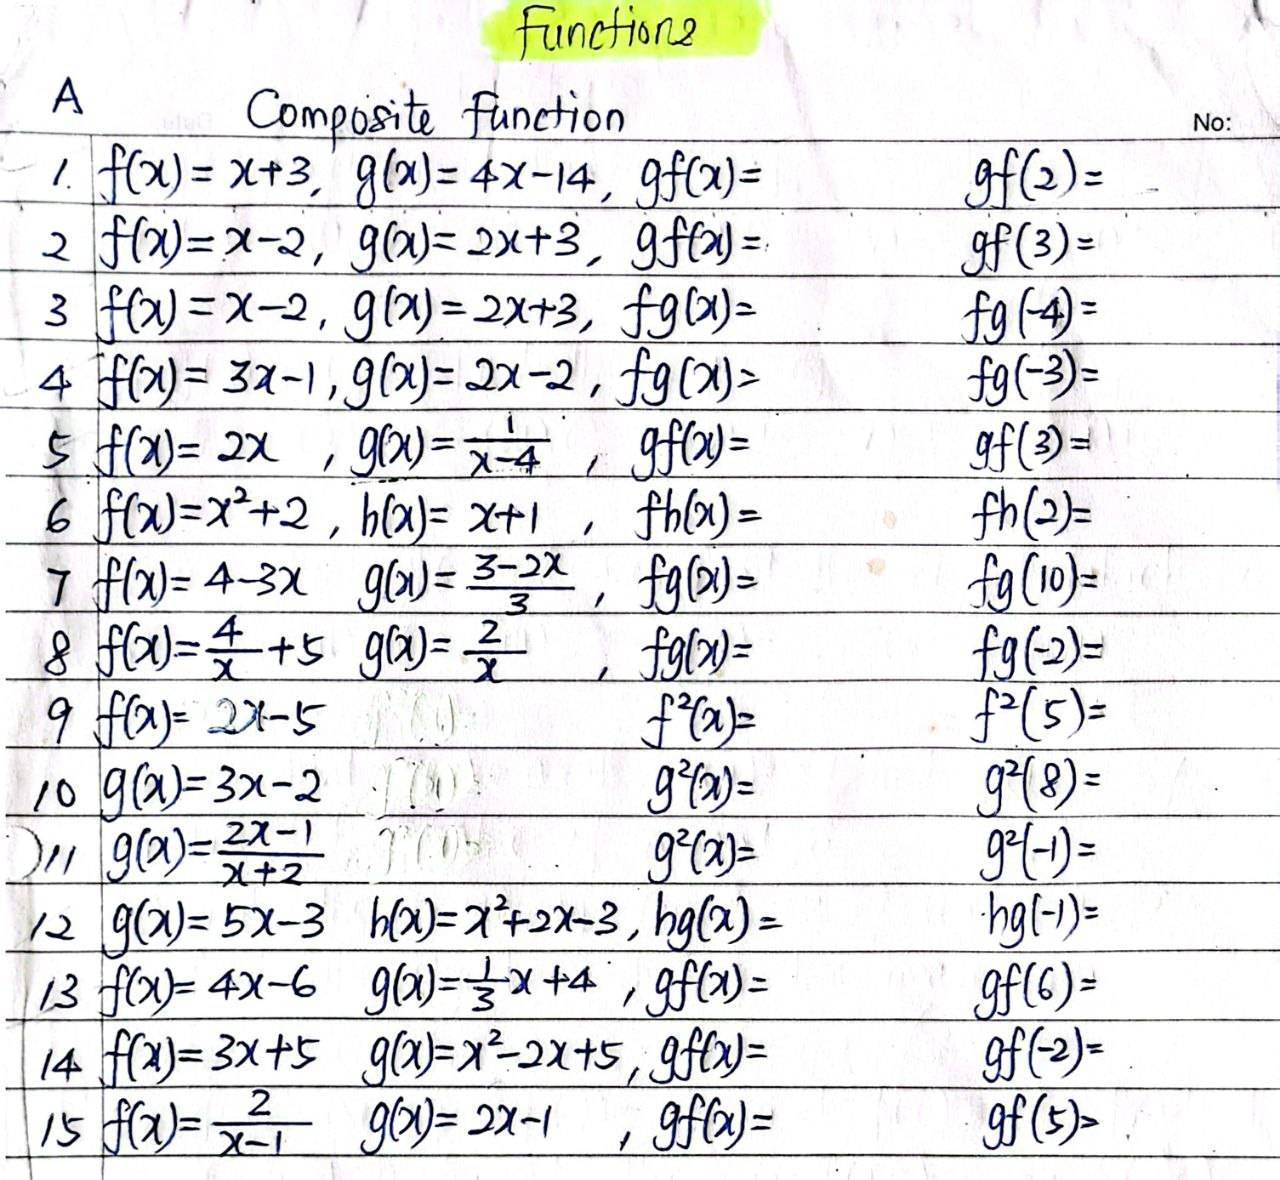 Functions
A Composite function
No:
1. f(x) = x+3, g(x) = 4x-14, gf(x)= gf(2) =
2 f(x) = x-2, g(x) = 2x+3, gf(x) = gf(3) =
3 f(x) = x-2, g(x) = 2x+3, fg(x)= fg(-4) =
4 f(x) = 3x-1, g(x) = 2x-2, fg(x) = fg(-3)=
5 f(x) = 2x , g(x) = 1/(x-4) , gf(x) = gf(3) =
6 f(x) = x²+2, h(x) = x+1 , fh(x) = fh(2)=
7 f(x) = 4-3x g(x) = (3-2x)/3 , fg(x) = fg(10)=
8 f(x) = 4/x +5 g(x) = 2/x , fg(x) = fg(-2)=
9 f(x) = 2x-5 f²(x)= f²(5) =
10 g(x) = 3x-2 g²(x)= g²(8) =
11 g(x) = (2x-1)/(x+2) g²(x)= g²(-1) =
12 g(x) = 5x-3 h(x) = x²+2x-3, hg(x) = hg(-1)=
13 f(x) = 4x-6 g(x) = 1/3 x +4 , gf(x) = gf(6) =
14 f(x) = 3x+5 g(x) = x²-2x+5, gf(x) = gf(-2)=
15 f(x) = 2/(x-1) g(x) = 2x-1 , gf(x) = gf(5)=